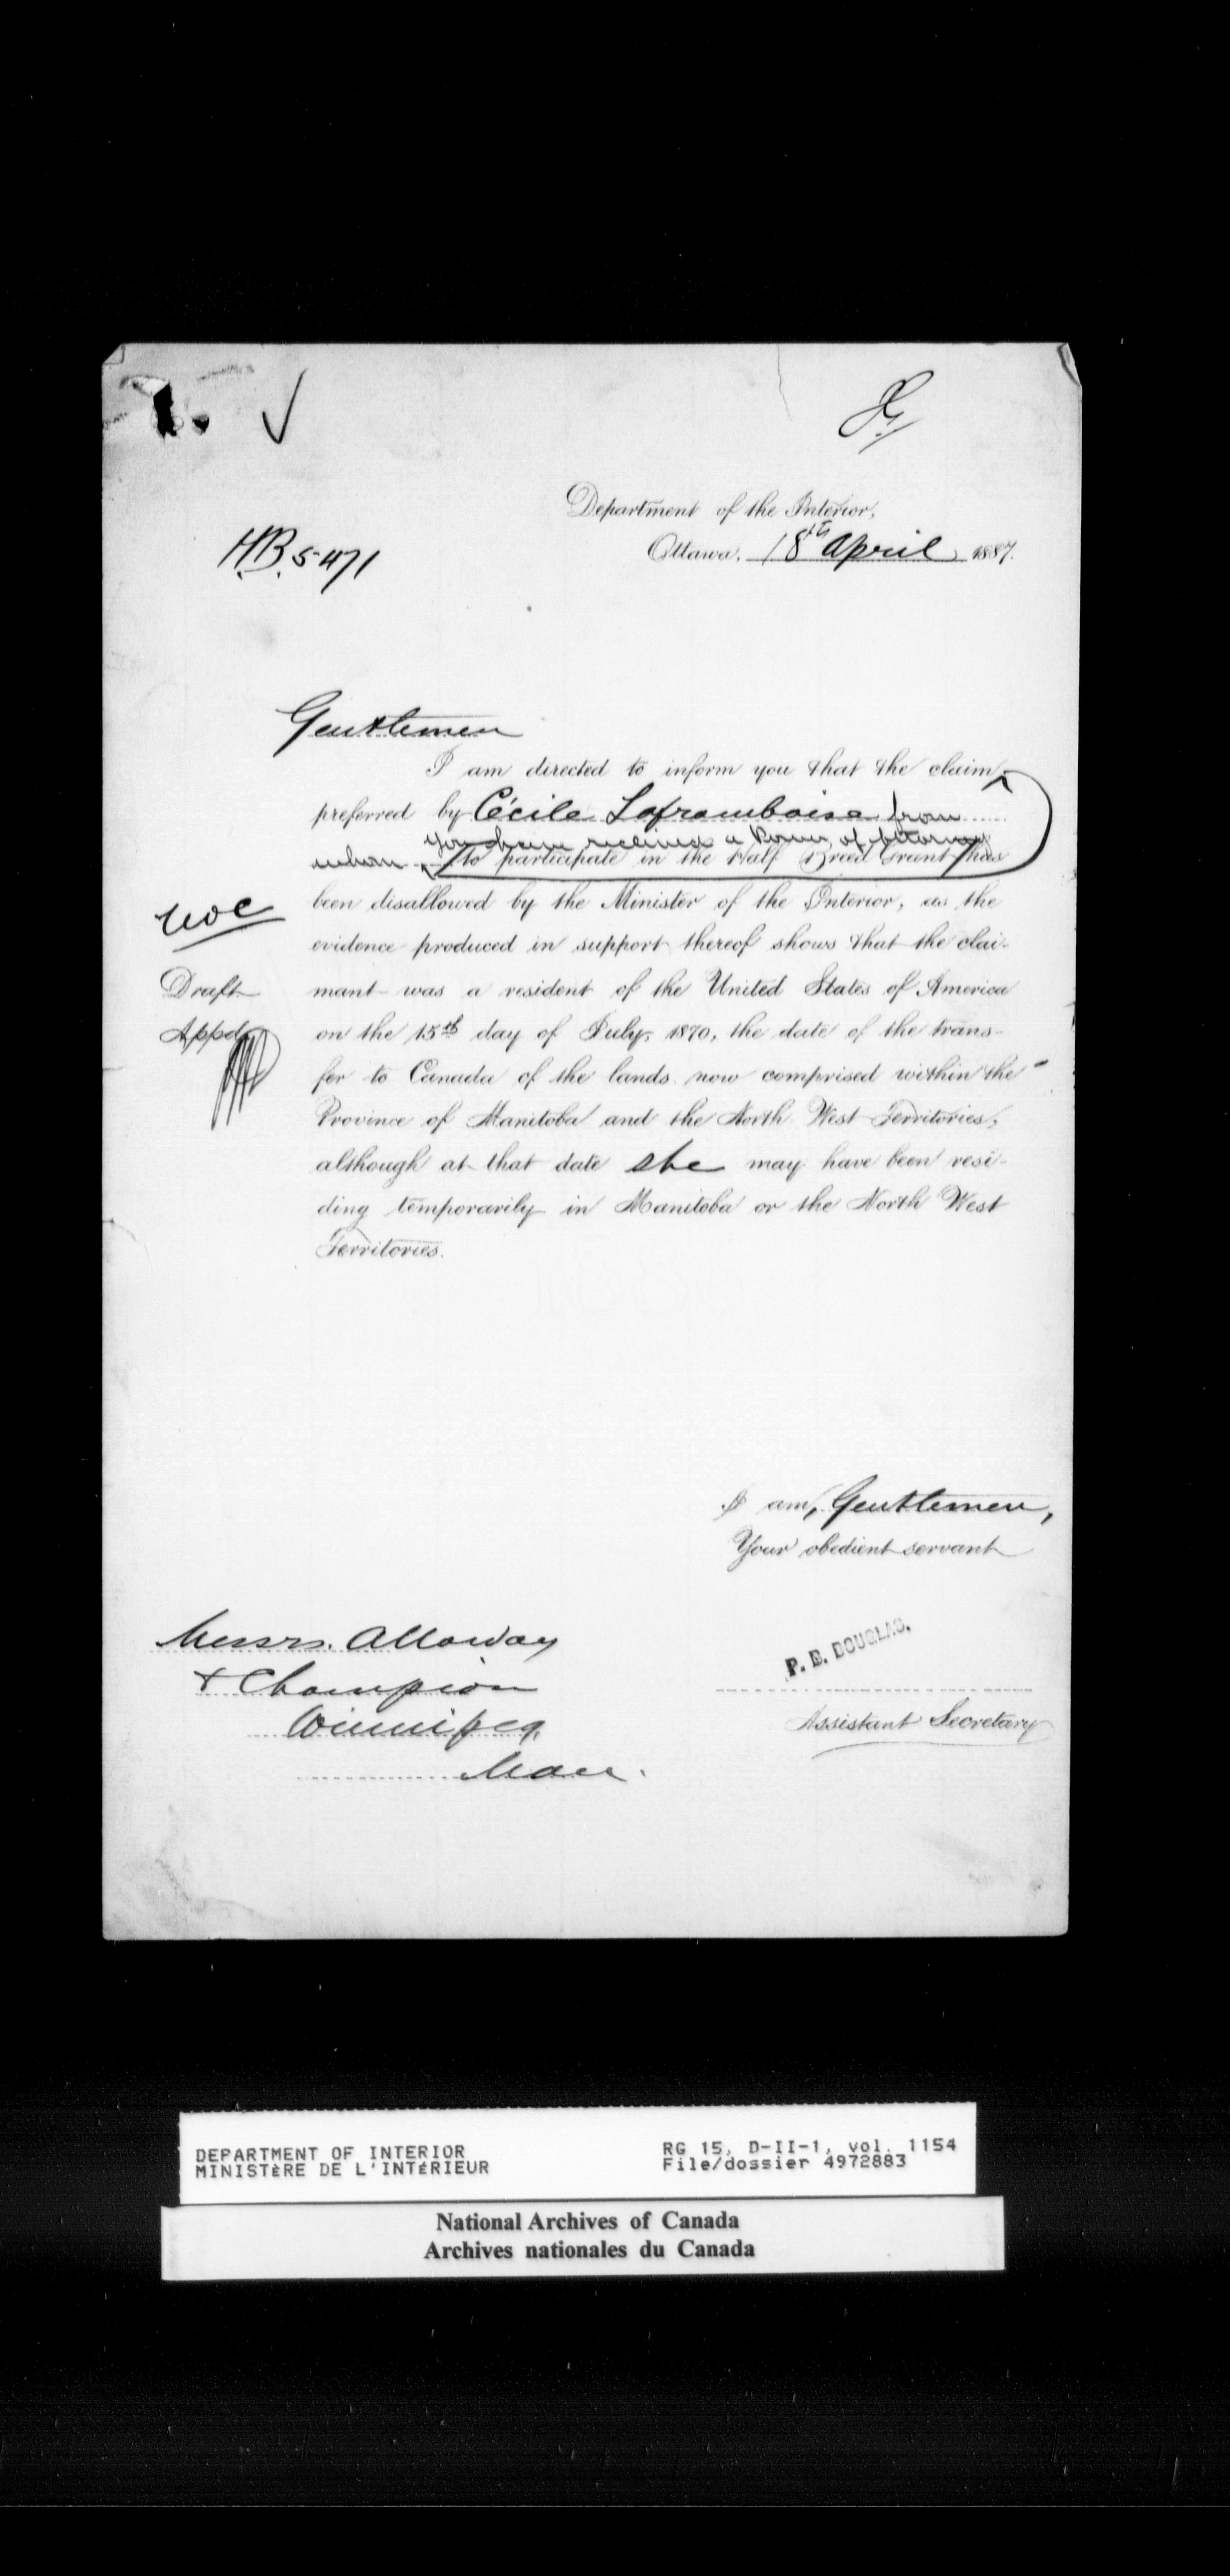 Department of the Interior,
Ottawa, 18th April 1887.
H.B. 5471
Gentlemen
I am directed to inform you that the claim
preferred by Cécile Laframboise from
you have received a Power of Attorney
whom to participate in the Half Breed Grant has
been disallowed by the Minister of the Interior, as the
evidence produced in support thereof shows that the clai-
mant was a resident of the United States of America
on the 15th day of July, 1870, the date of the trans-
fer to Canada of the lands now comprised within the
Province of Manitoba and the North West Territories,
although at that date she may have been resi-
ding temporarily in Manitoba or the North West
Territories.
Draft
Appd
I am, Gentlemen,
Your obedient servant
P. B. DOUGLAS.
Assistant Secretary
Messrs. Alloway
& Champion
Winnipeg,
Man.
DEPARTMENT OF INTERIOR
MINISTÈRE DE L'INTÉRIEUR
RG 15, D-II-1, vol. 1154
File/dossier 4972883
National Archives of Canada
Archives nationales du Canada